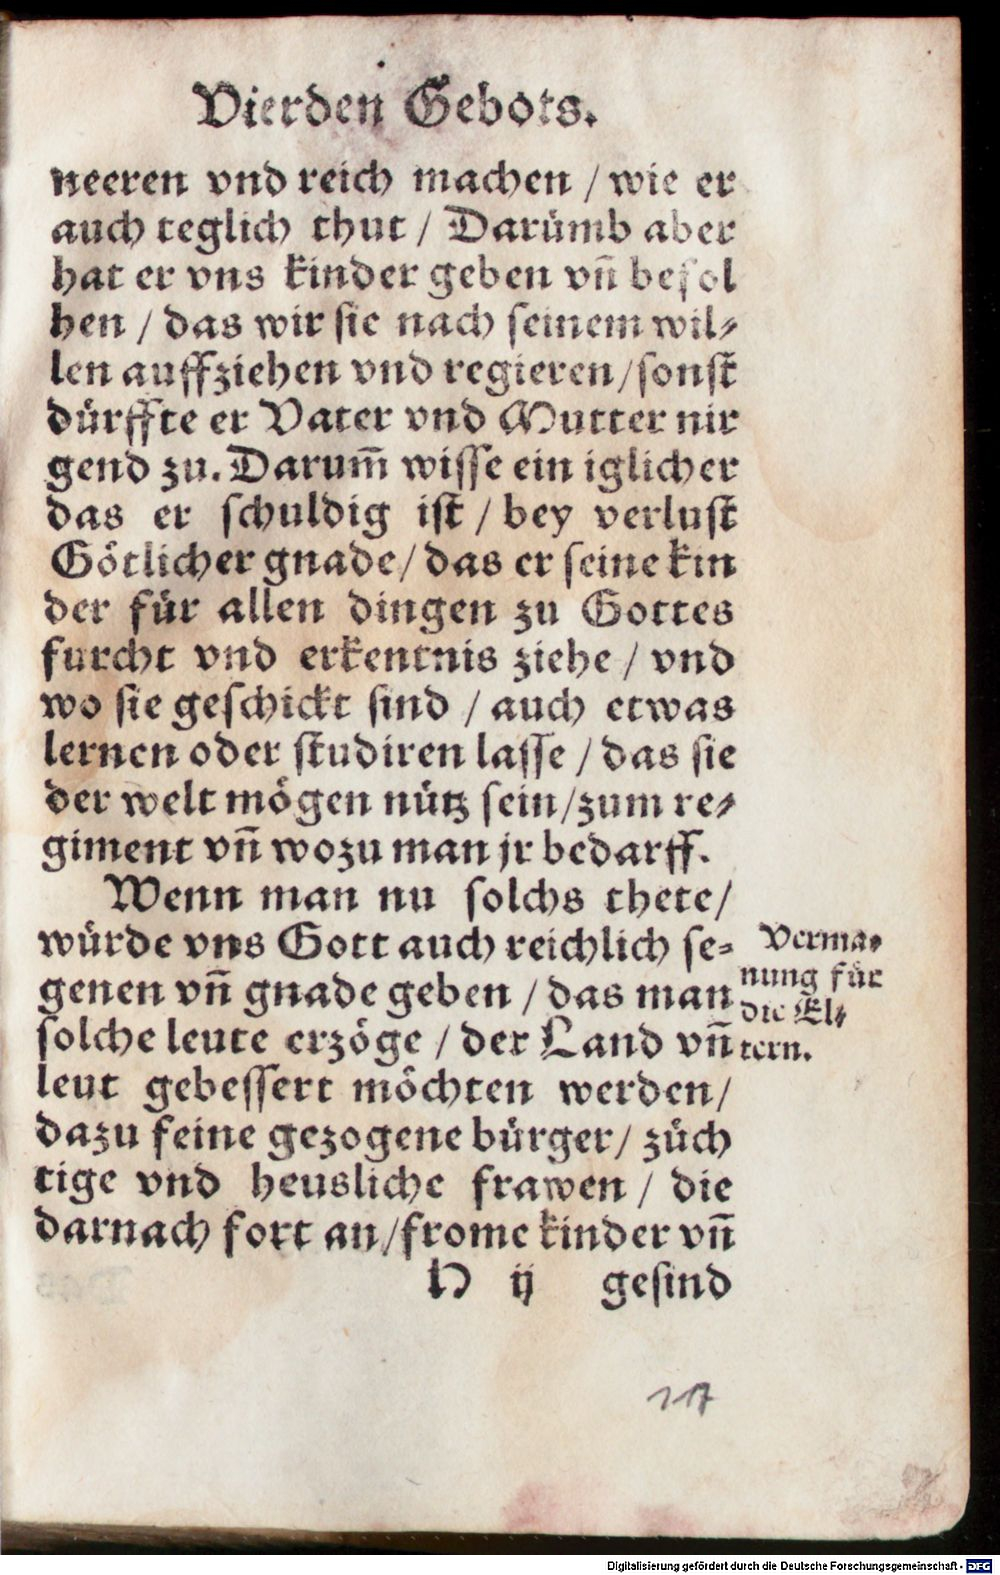 Vierden Gebots.
neeren vnd reich machen / wie er
auch teglich thut / Darümb aber
hat er vns kinder geben vñ befol
hen / das wir sie nach seinem wil⸗
len auffziehen vnd regieren / sonst
dürffte er Vater vnd Mutter nir
gend zu. Darum̃ wisse ein iglicher
das er schuldig ist / bey verlust
Götlicher gnade / das er seine kin
der für allen dingen zu Gottes
furcht vnd erkentnis ziehe / vnd
wo sie geschickt sind / auch etwas
lernen oder studiren lasse / das sie
der welt mögen nütz sein / zum re⸗
giment vñ wozu man jr bedarff.
Wenn man nu solchs thete /
würde vns Gott auch reichlich se⸗
genen vñ gnade geben / das man
solche leute erzöge / der Land vñ
leut gebessert möchten werden /
dazu feine gezogene bürger / züch
tige vnd heusliche frawen / die
darnach fort an / frome kinder vñ
H ij gesind
Verma⸗
nung für
die El⸗
tern.
117
Digitalisierung gefördert durch die Deutsche Forschungsgemeinschaft - DFG